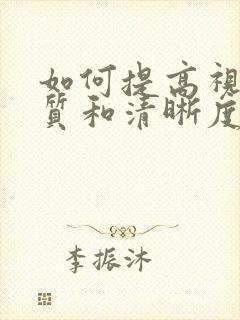 如何提高视
质和清晰度
李振沐